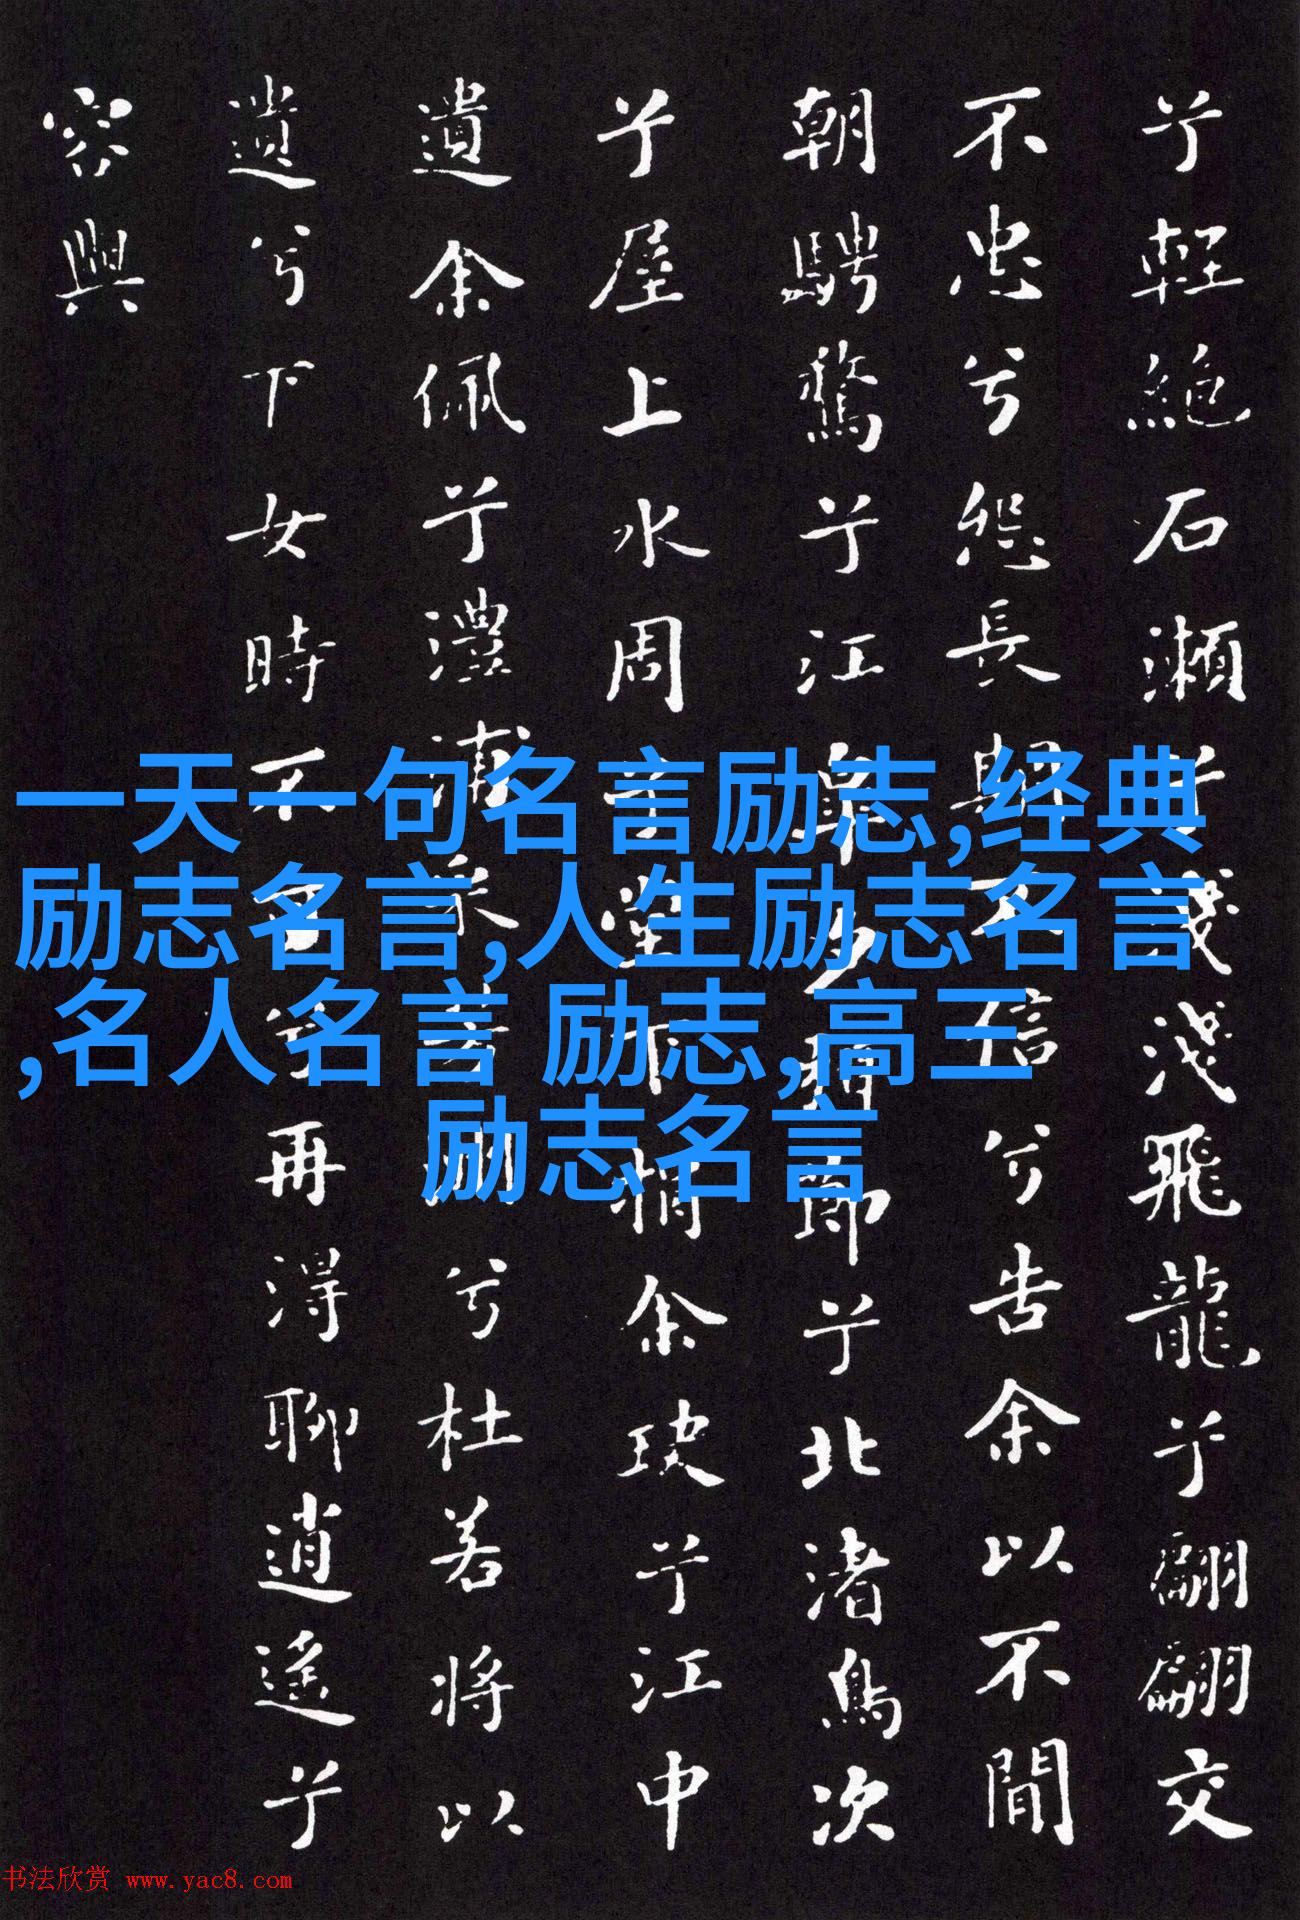 兮輕絕石瀨兮淺淺飛龍兮翩翩交
不忠兮怨長期不信兮告余以不間
朝騁騖兮江皋夕弭節兮北渚鳥次
兮屋上水周兮堂下捐余玦兮江中
遺余佩兮澧浦采芳洲兮杜若將以
遺兮下女時不可兮再得聊逍遙兮
容與
一天一句名言励志,经典
励志名言,人生励志名言
,名人名言 励志,高三
励志名言
书法欣赏 www.yac8.com